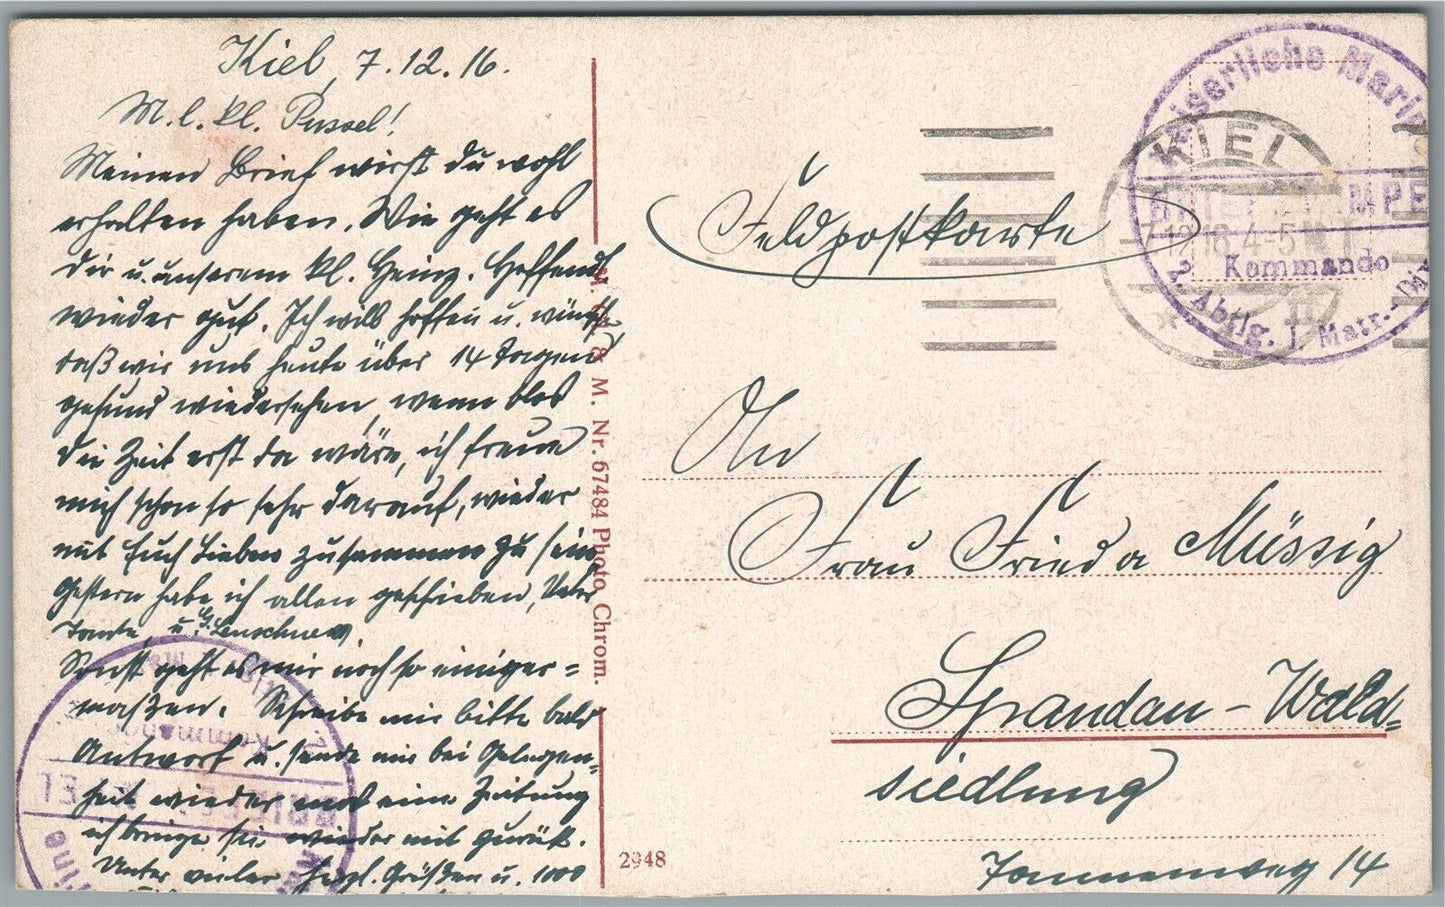 Kiel, 7.12.16.
M. l. kl. Pussel!
Meinen Brief wirst du wohl
erhalten haben. Wie geht es
dir u. unserem kl. Heinz. Hoffendl.
wieder gut. Ich will hoffen u. wünsche,
daß wir uns heute über 14 Tagen
gesund wiedersehen, wenn blos
die Zeit erst da wäre, ich freue
mich schon so sehr darauf, wieder
mit Euch Lieben zusammen zu sein
Gestern habe ich allen geschrieben,
Tante, u.
Sonst geht es mir noch so einiger=
maßen. Schreibe mir bitte bald
Antwort u. sende mir bei Gelegen=
heit wieder mal eine Zeitung
ich bringe sie wieder mit zurück.
Unter vielen herzl. Grüßen u. 1000
M. & M. Nr. 67484 Photo. Chrom.
2948
Feldpostkarte
Kaiserliche Marine
BRIEFSTEMPEL
Kommando
2. Abtlg. I. Matr.-Div
KIEL
7.12.16.4-5N
An
Frau Frieda Müssig
Spandau-Wald=
siedlung
Tannenweg 14